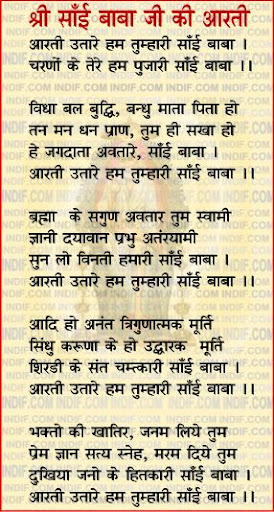 श्री साँई बाबा जी की आरती
आरती उतारे हम तुम्हारी साँई बाबा ।
चरणों के तेरे हम पुजारी साँई बाबा ।।
विधा बल बुद्धि, बन्धु माता पिता हो
तन मन धन प्राण, तुम ही सखा हो
हे जगदाता अवतारे, साँई बाबा ।
आरती उतारे हम तुम्हारी साँई बाबा ।।
ब्रह्मा के सगुण अवतार तुम स्वामी
ज्ञानी दयावान प्रभु अतंरयामी
सुन लो विनती हमारी साँई बाबा ।
आरती उतारे हम तुम्हारी साँई बाबा ।।
आदि हो अनंत त्रिगुणात्मक मूर्ति
सिंधु करूणा के हो उद्धारक मूर्ति
शिरडी के संत चम्त्कारी साँई बाबा ।
आरती उतारे हम तुम्हारी साँई बाबा ।।
भक्तो की खातिर, जनम लिये तुम
प्रेम ज्ञान सत्य स्नेह, मरम दिये तुम
दुखिया जनो के हितकारी साँई बाबा ।
आरती उतारे हम तुम्हारी साँई बाबा ।।
INDIF.COM